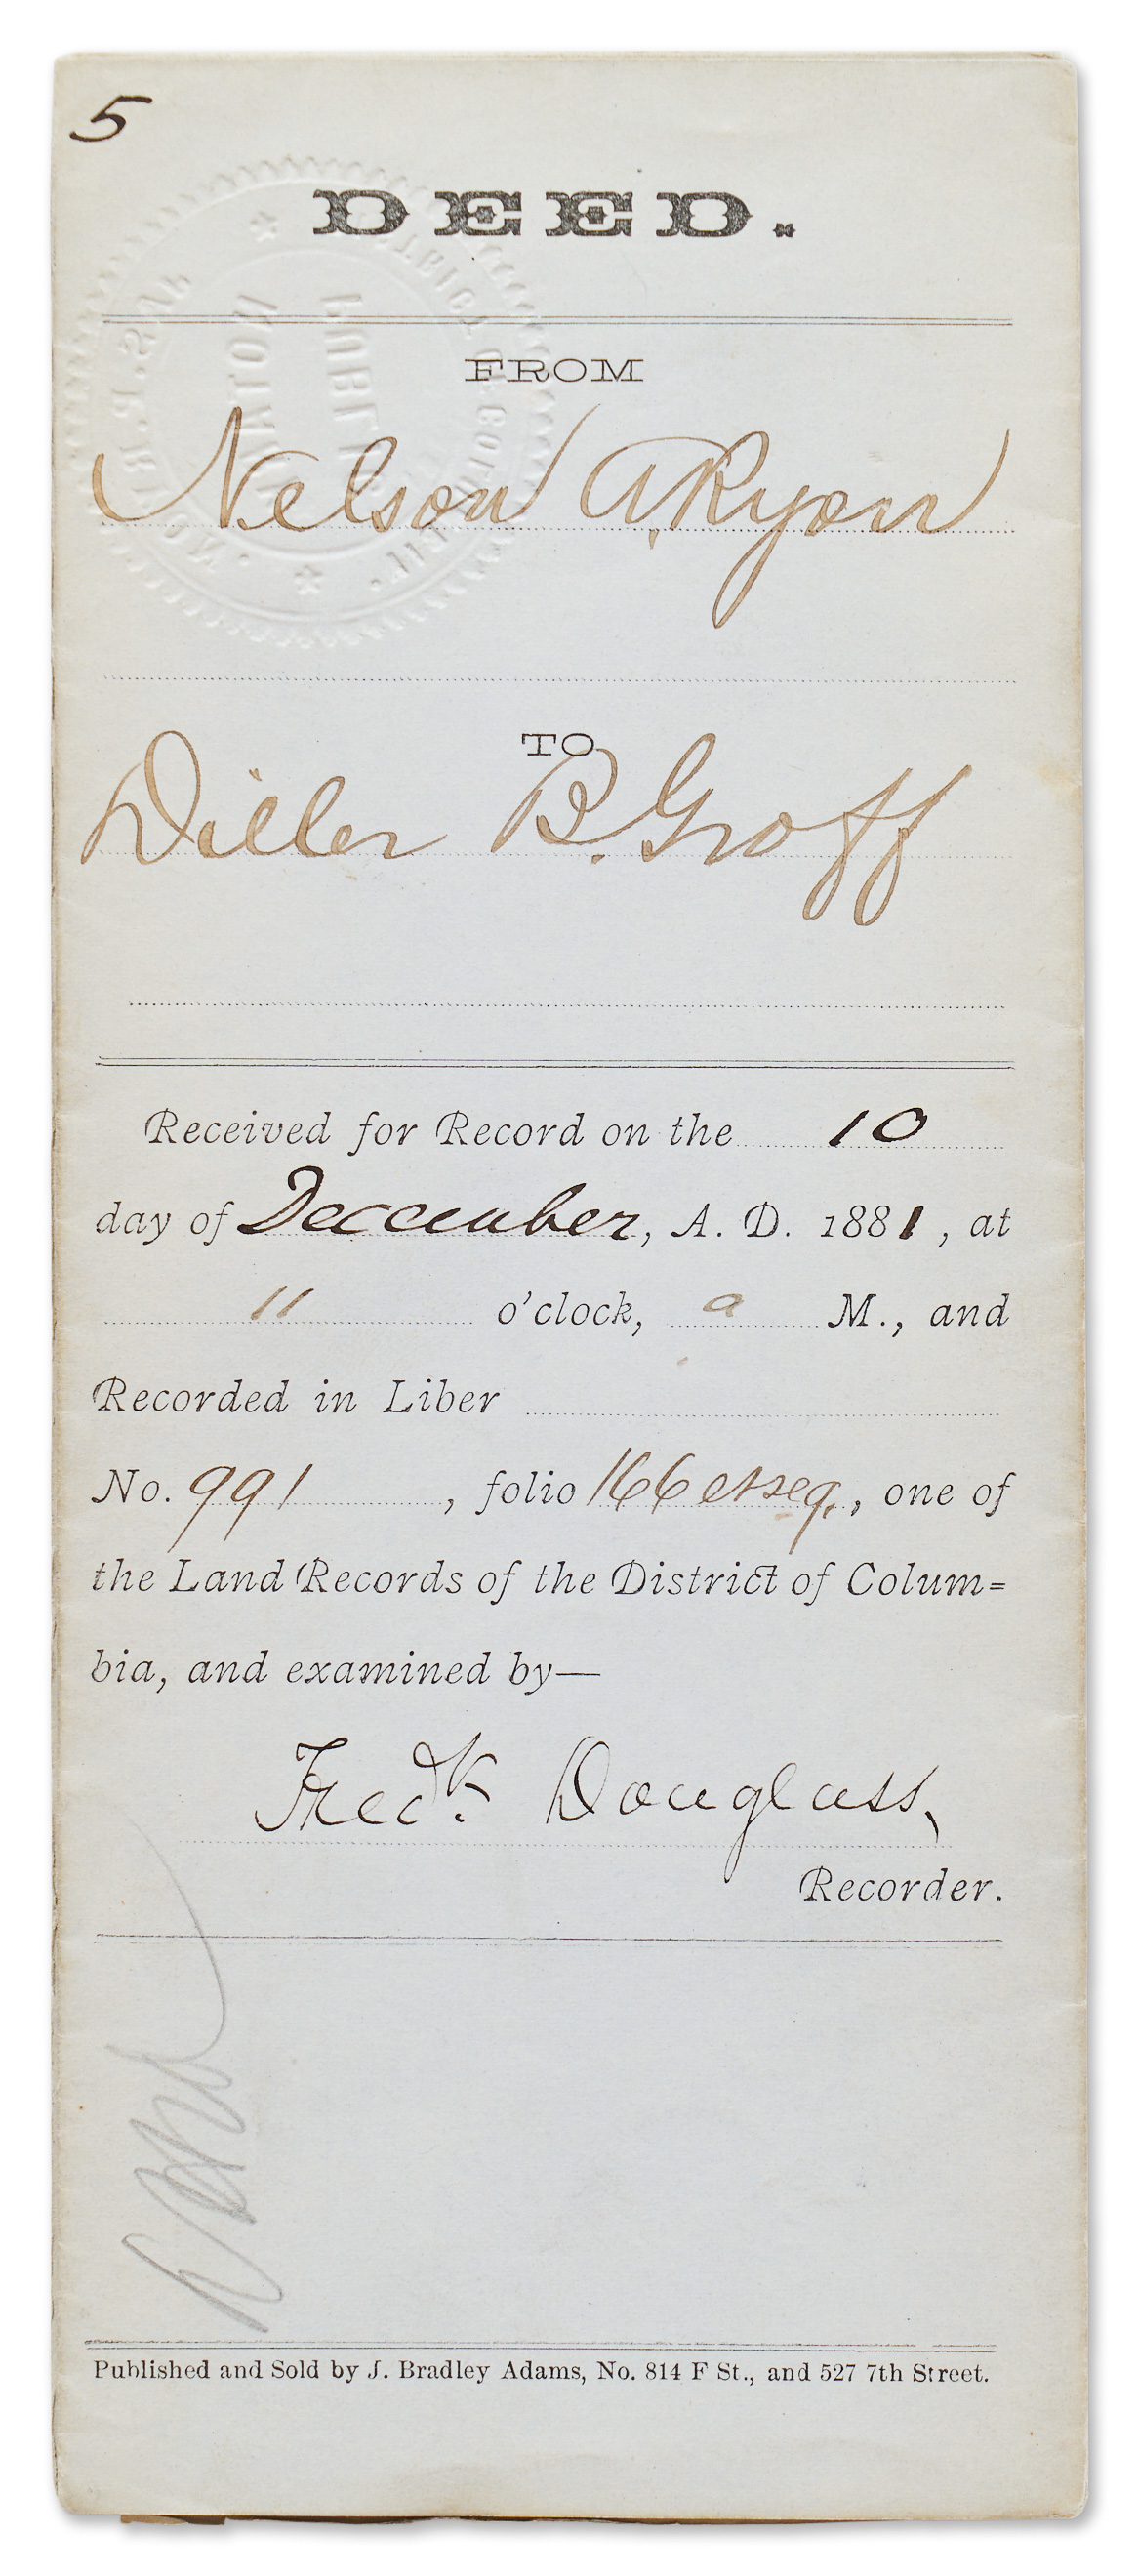 5
DEED.
FROM
Nelson A. Ryon
TO
Diller B. Groff
Received for Record on the 10
day of December, A. D. 1881, at
11 o'clock, a M., and
Recorded in Liber
No. 991, folio 166 et seq., one of
the Land Records of the District of Colum=
bia, and examined by—
Fredk. Douglass,
Recorder.
Published and Sold by J. Bradley Adams, No. 814 F St., and 527 7th Street.